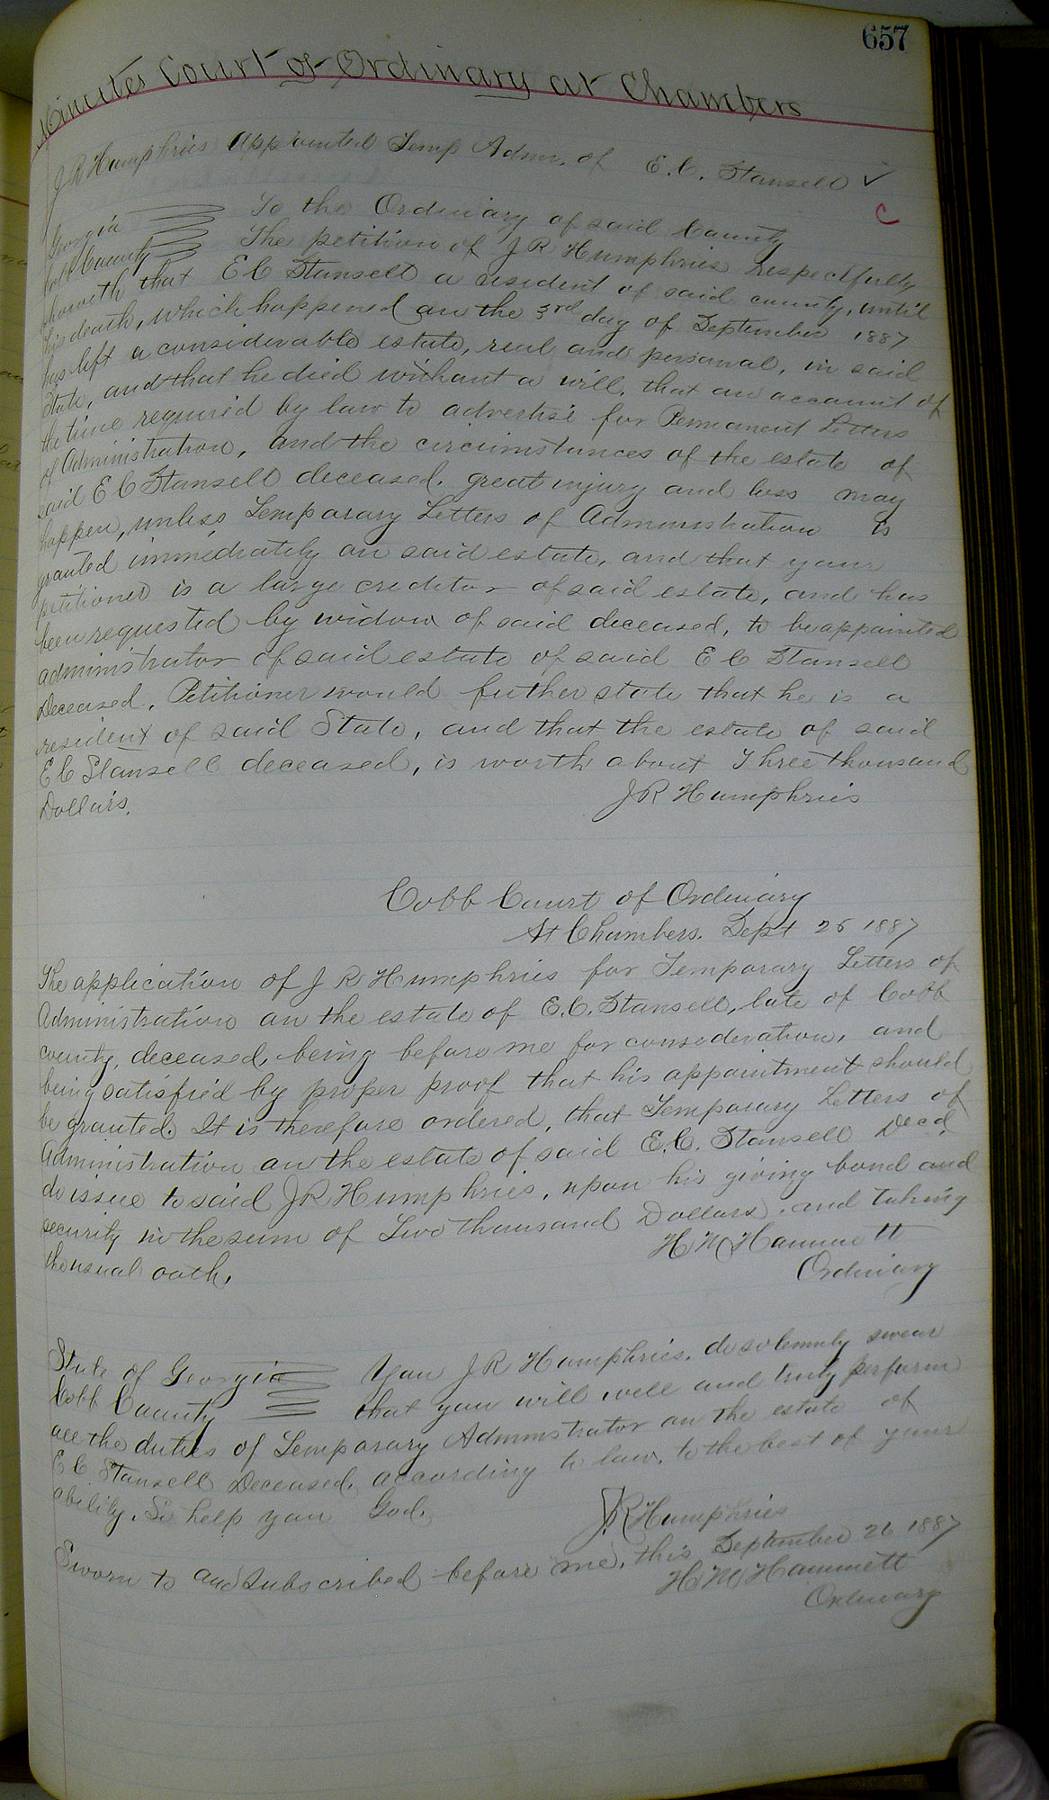 657
Minutes Court of Ordinary at Chambers
J R Humphries Appointed Temp Admr. of E. C. Stansell ✓
C
Georgia To the Ordinary of said County
Cobb County The petition of J R Humphries Respectfully
showeth that E C Stansell a resident of said county, until
his death, which happened on the 3rd day of September 1887
has left a considerable estate, real and personal, in said
State, and that he died without a will, that on account of
the time required by law to advertise for Permanent Letters
of Administration, and the circumstances of the estate of
said E C Stansell deceased, great injury and loss may
happen, unless Temporary Letters of Administration is
granted immediately on said estate, and that your
petitioner is a large creditor of said estate, and has
been requested by widow of said deceased, to be appointed
administrator of said estate of said E C Stansell
Deceased. Petitioner would futher state that he is a
resident of said State, and that the estate of said
E C Stansell deceased, is worth about Three thousand
Dollars.
J R Humphries
Cobb Court of Ordinary
At Chambers. Sept 26 1887
The application of J R Humphries for Temporary Letters of
Administration on the estate of E. C. Stansell, late of Cobb
county, deceased, being before me for consideration, and
being satisfied by proper proof that his appointment should
be granted. It is therefore ordered, that Temporary Letters of
Administration on the estate of said E. C. Stansell Decd.
do issue to said J R Humphries, upon his giving bond and
security in the sum of Two thousand Dollars, and taking
the usual oath.
H M Hammett
Ordinary
State of Georgia You J R Humphries. do solemnly swear
Cobb County that you will well and truly perform
all the duties of Temporary Administrator on the estate of
E C Stansell Deceased. according to law, to the best of your
ability. So help you God.
J R Humphries
Sworn to and subscribed before me, this September 26 1887
H M Hammett
Ordinary